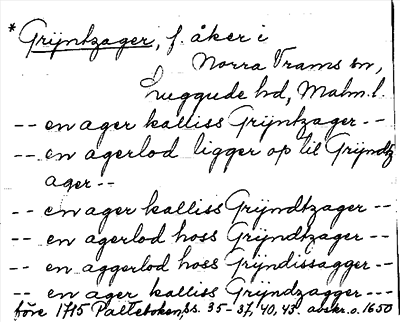 * Grÿntzager, f. åker i
Norra Vrams sn,
Luggude hd, Malm. l.
-- en ager kalliss Grÿntzager --
-- en agerlod ligger op til Grÿndtz
ager --
-- en ager kalliss Gryndtzager --
-- en agerlod hoss Gryndtzager --
-- en aggerlod hoss Gryndissagger --
-- en ager kalliss Gryndzagger ---
före 1715 Palteboken, ps. 35-37, 40, 43. avskr. o. 1650